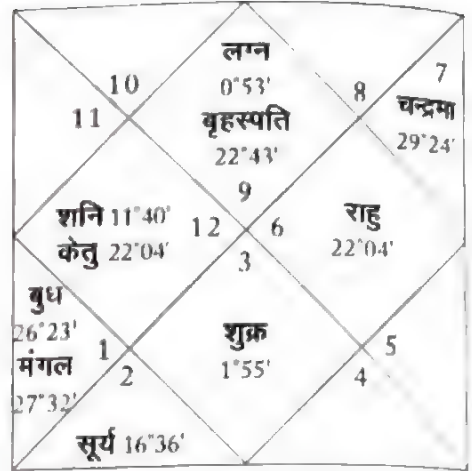 लग्न
0°53'
बृहस्पति
22°43'
10
11
8
7
चन्द्रमा
29°24'
9
शनि 11°40'
केतु 22°04'
12
6
राहु
22°04'
3
बुध
26°23'
मंगल
27°32'
1
2
शुक्र
1°55'
5
4
सूर्य 16°36'